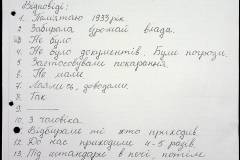 Відповіді:
1. Пам'ятаю 1933 рік
2. Забирала врожай влада.
3. Не було
4. Не було документів. Були погрози.
5. Застосовували покарання.
6. Не мали
7. доводили.
8. Так
9.
10. 3 чоловіка
11. Відбирали ті хто приходив.
12. До нас приходили 4-5 разів.
13. в печі,